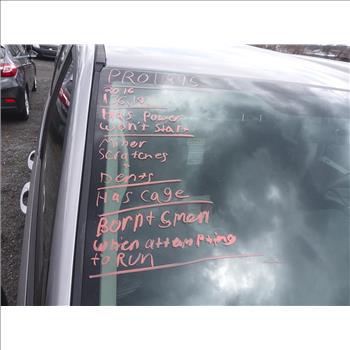 2016
Has power
won't start
Miner
Scratches
+
Dents
Has cage
Bornt Smell
when attempting
to RUN